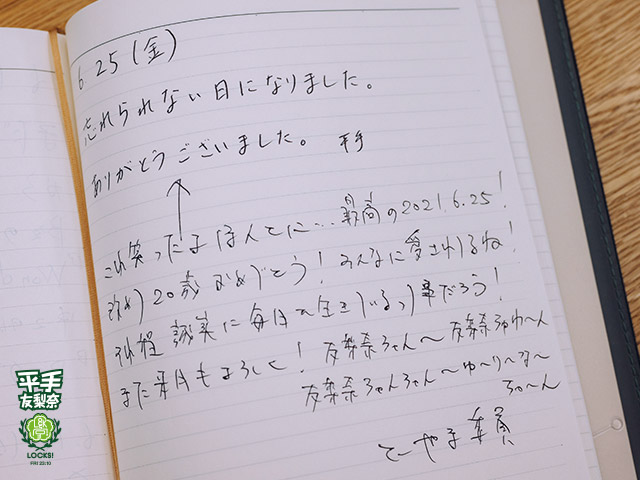 6 25(金)
忘れられない日になりました。
ありがとうございました。 平手
これ笑ったよほんとに… 最高の2021.6.25!
改め 20歳おめでとう! みんなに愛されてるね!
誠実に毎日を生きているっ事だろう!
また来月もよろしく! 友梨奈ちゃん〜 友梨奈ちゅわ〜ん
友梨奈ちゃんちゃん〜ゆ〜り〜な〜
ちゅ〜ん
とーやま委員
平手
友梨奈
LOCKS!
FRI 23:10